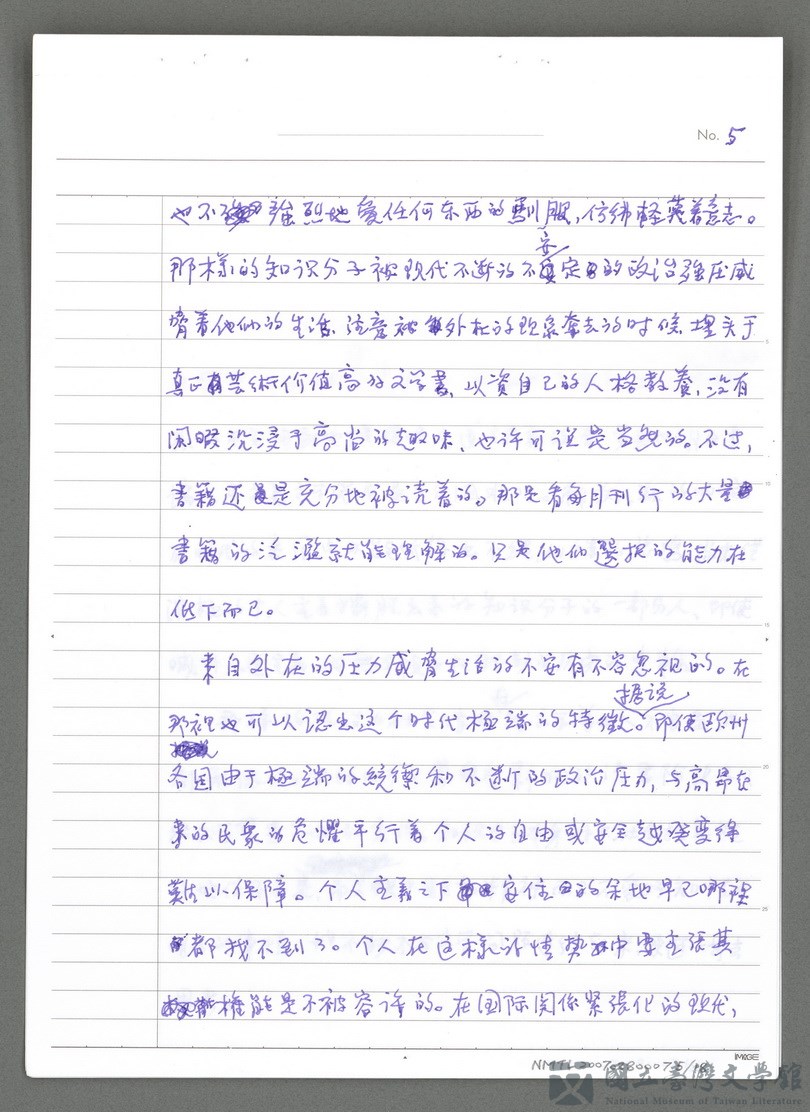 No. 5
也不強烈地愛任何东西的馴服，仿彿輕蔑着意志。
安
那樣的知识分子被现代不断的不定的政治強压威
脅着他们的生活、注意被外在的现象奪去的时候、埋头于
真正芸術价值高的文学書、以資自己的人格教養，没有
閑暇沉浸于高尚的趣味、也许可说是当然的。不过，
書籍还是充分地被读着的。那是看每月刊行的大量
書籍的泛濫就能理解的。只是他们選択的能力在
低下而已。
来自外在的压力威脅生活的不安有不容忽視的。在
据说
那裡也可以認出这个时代極端的特徵。即使欧州
各国由于極端的統禦和不断的政治压力，与高昂起
来的民衆的危懼平行着个人的自由或安全越発变得
難以保障。个人主義之下安住的余地早已哪裡
都找不到了。个人在这樣的情势中要主張其
権能是不被容许的。在国际関係緊張化的现代，
IMAGE
NMTL20070280007 5/18
國立臺灣文學館
National Museum of Taiwan Literature